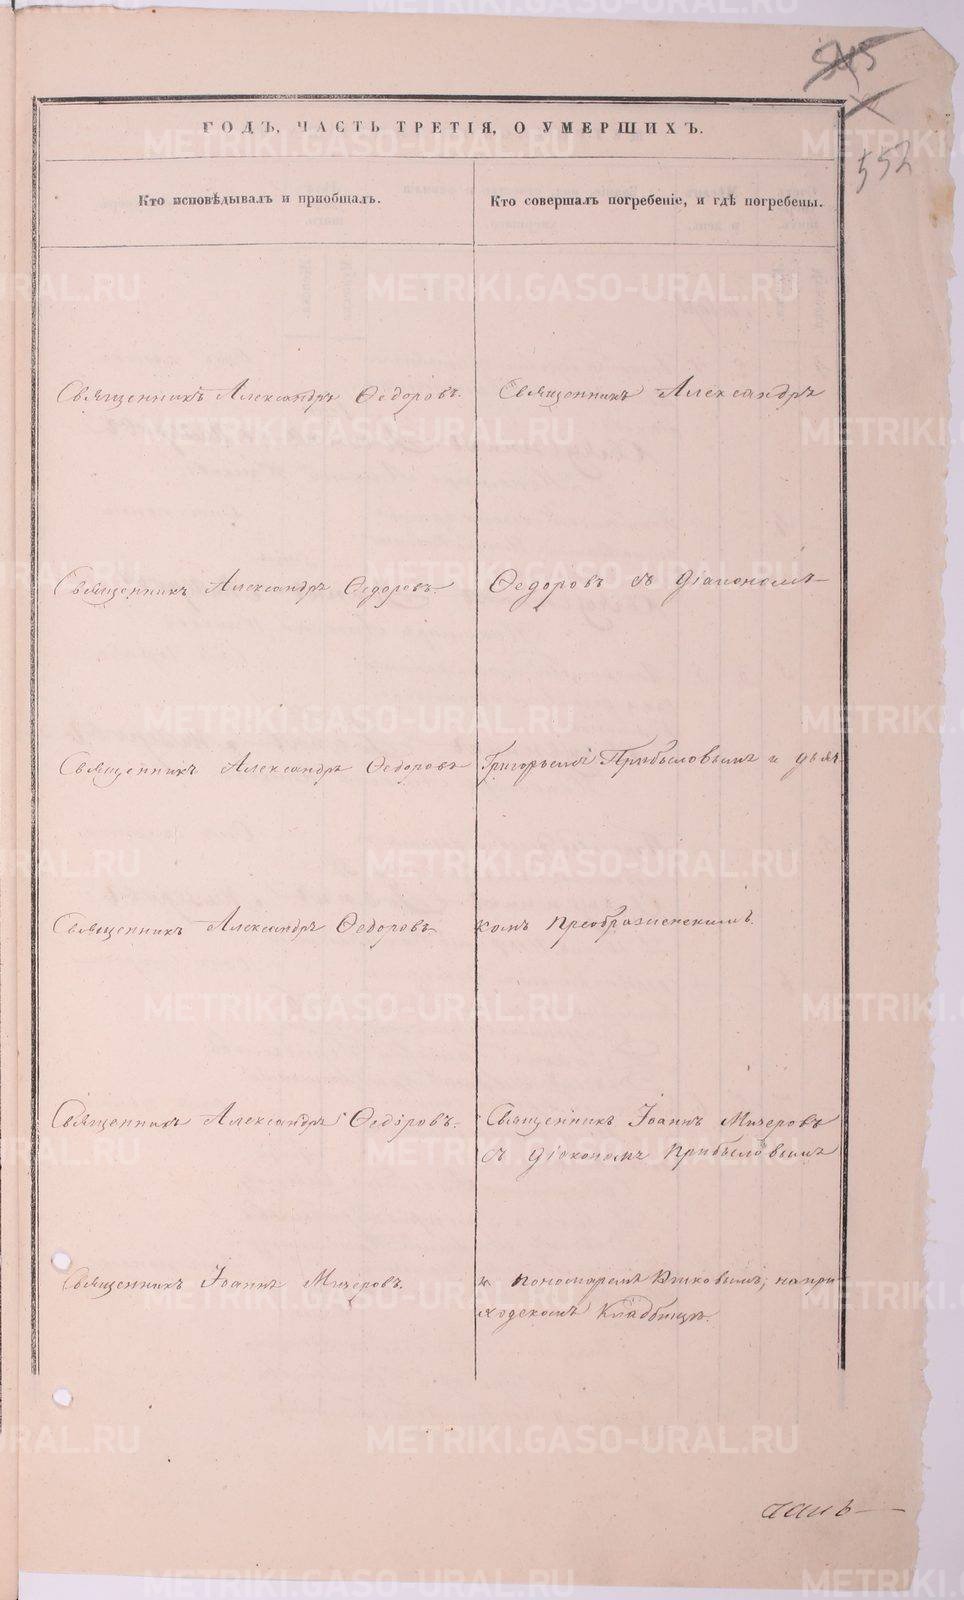 545
552
ГОДЪ, ЧАСТЬ ТРЕТІЯ, О УМЕРШИХЪ.
Кто исповѣдывалъ и приобщалъ.
Кто совершалъ погребеніе, и гдѣ погребены.
Священникъ Александръ Ѳедоровъ.
Священникъ Александръ Ѳедоровъ.
Священникъ Александръ Ѳедоровъ
Священникъ Александръ Ѳедоровъ
Священникъ Александръ Ѳедоровъ.
Священникъ Іоаннъ Мизеровъ.
Священникъ Александръ
Ѳедоровъ съ діакономъ
Григорьемъ Прибыловымъ и дьяч
комъ Преображенскимъ.
Священникъ Іоаннъ Мизеровъ
съ діакономъ Прибыловымъ
и пономаремъ на при
ходскомъ кладбищѣ.
METRIKI.GASO-URAL.RU